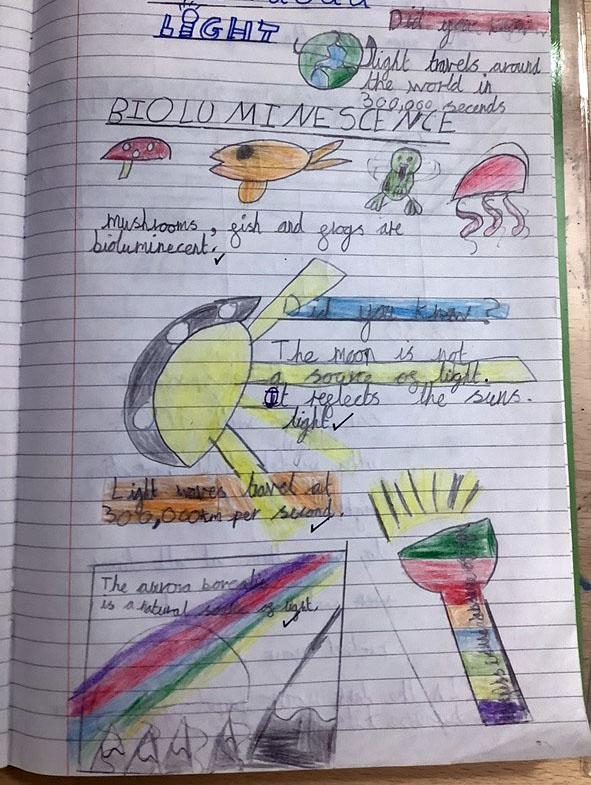 LIGHT
Did you know
light travels around
the world in
300,000 seconds
BIOLUMINESCENCE
mushrooms, fish and frogs are
bioluminecent.
Did you know?
The moon is not
a source of light.
It reflects the suns.
light
Light waves travel at
300,000km per second.
The aurora borealis
is a natural source of light.